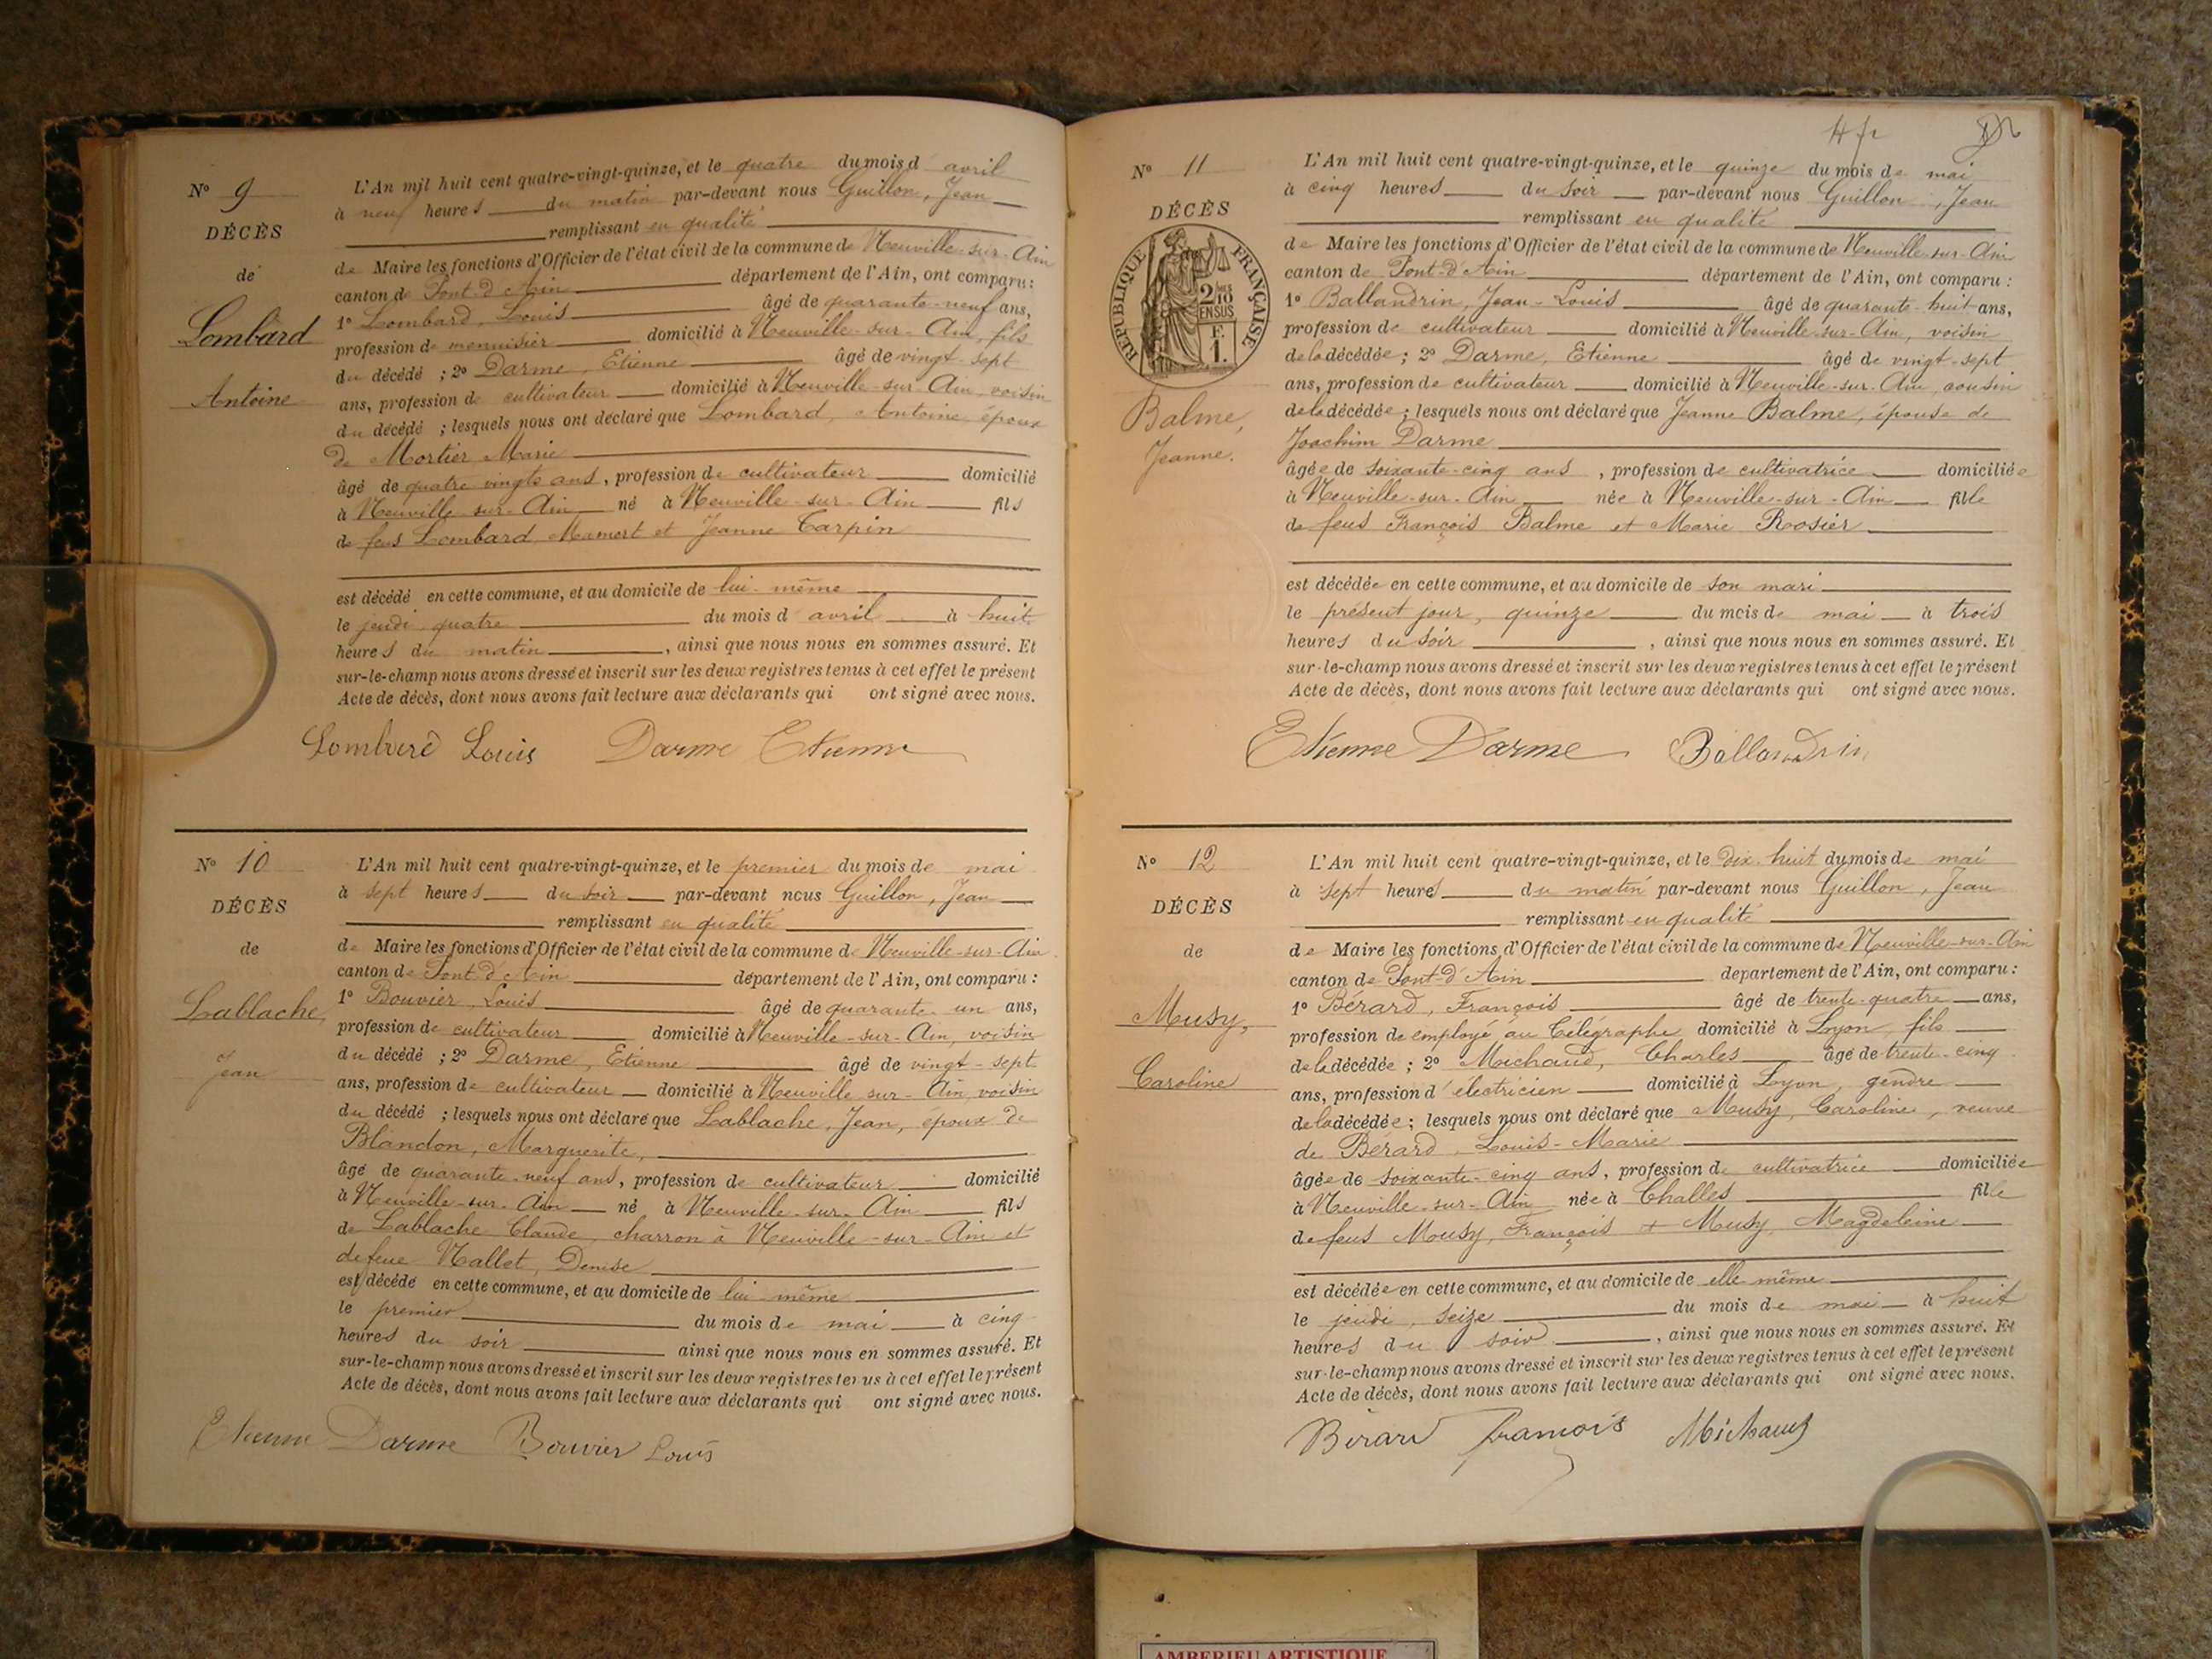 N° 9
DÉCÈS
de
Lombard
Antoine
L'An mil huit cent quatre-vingt-quinze, et le quatre du mois d avril
à neuf heures du matin par-devant nous Guillon, Jean
remplissant en qualité
de Maire les fonctions d'Officier de l'état civil de la commune de Neuville-sur-Ain
canton de Pont-d'Ain département de l'Ain, ont comparu :
1° Lombard, Louis âgé de quarante-neuf ans,
profession de menuisier domicilié à Neuville-sur-Ain, fils
du décédé ; 2° Darme, Etienne âgé de vingt-sept
ans, profession de cultivateur domicilié à Neuville-sur-Ain, voisin
du décédé ; lesquels nous ont déclaré que Lombard, Antoine, époux
de Mortier Marie
âgé de quatre vingts ans, profession de cultivateur domicilié
à Neuville-sur-Ain né à Neuville-sur-Ain fils
de feus Lombard Mamert et Jeanne Carpin
est décédé en cette commune, et au domicile de lui-même
le jeudi quatre du mois d avril à huit
heures du matin, ainsi que nous nous en sommes assuré. Et
sur-le-champ nous avons dressé et inscrit sur les deux registres tenus à cet effet le présent
Acte de décès, dont nous avons fait lecture aux déclarants qui ont signé avec nous.
Lombard Louis Darme Etienne
N° 10
DÉCÈS
de
Lablache,
Jean
L'An mil huit cent quatre-vingt-quinze, et le premier du mois de mai
à sept heures du soir par-devant nous Guillon, Jean
remplissant en qualité
de Maire les fonctions d'Officier de l'état civil de la commune de Neuville-sur-Ain
canton de Pont-d'Ain département de l'Ain, ont comparu :
1° Bouvier, Louis âgé de quarante-un ans,
profession de cultivateur domicilié à Neuville-sur-Ain, voisin
du décédé ; 2° Darme, Etienne âgé de vingt-sept
ans, profession de cultivateur domicilié à Neuville-sur-Ain, voisin
du décédé ; lesquels nous ont déclaré que Lablache, Jean, époux de
Blandon, Marguerite,
âgé de quarante-neuf ans, profession de cultivateur domicilié
à Neuville-sur-Ain né à Neuville-sur-Ain fils
de Lablache Claude, charron à Neuville-sur-Ain et
de feue Nallet, Denise
est décédé en cette commune, et au domicile de lui-même
le premier du mois de mai à cinq
heures du soir ainsi que nous nous en sommes assuré. Et
sur-le-champ nous avons dressé et inscrit sur les deux registres tenus à cet effet le présent
Acte de décès, dont nous avons fait lecture aux déclarants qui ont signé avec nous.
Etienne Darme Bouvier Louis
N° 11
DÉCÈS
RÉPUBLIQUE FRANÇAISE
2/10 EN SUS
F. 1.
Balme,
Jeanne.
L'An mil huit cent quatre-vingt-quinze, et le quinze du mois de mai
à cinq heures du soir par-devant nous Guillon, Jean
remplissant en qualité
de Maire les fonctions d'Officier de l'état civil de la commune de Neuville-sur-Ain
canton de Pont-d'Ain département de l'Ain, ont comparu :
1° Ballandrin, Jean-Louis âgé de quarante-huit ans,
profession de cultivateur domicilié à Neuville-sur-Ain, voisin
de la décédée ; 2° Darme, Etienne âgé de vingt-sept
ans, profession de cultivateur domicilié à Neuville-sur-Ain, cousin
de la décédée ; lesquels nous ont déclaré que Jeanne Balme, épouse de
Joachim Darme
âgée de soixante-cinq ans, profession de cultivatrice domiciliée
à Neuville-sur-Ain née à Neuville-sur-Ain fille
de feus François Balme et Marie Rosier
est décédée en cette commune, et au domicile de son mari
le présent jour, quinze du mois de mai à trois
heures du soir, ainsi que nous nous en sommes assuré. Et
sur-le-champ nous avons dressé et inscrit sur les deux registres tenus à cet effet le présent
Acte de décès, dont nous avons fait lecture aux déclarants qui ont signé avec nous.
Etienne Darme Ballandrin
N° 12
DÉCÈS
de
Musy,
Caroline
L'An mil huit cent quatre-vingt-quinze, et le dix-huit du mois de mai
à sept heures du matin par-devant nous Guillon, Jean
remplissant en qualité
de Maire les fonctions d'Officier de l'état civil de la commune de Neuville-sur-Ain
canton de Pont-d'Ain département de l'Ain, ont comparu :
1° Bérard, François âgé de trente-quatre ans,
profession de employé au Télégraphe domicilié à Lyon, fils
de la décédée ; 2° Michaud, Charles âgé de trente-cinq
ans, profession d'électricien domicilié à Lyon, gendre
de la décédée ; lesquels nous ont déclaré que Musy, Caroline, veuve
de Bérard, Louis-Marie
âgée de soixante-cinq ans, profession de cultivatrice domiciliée
à Neuville-sur-Ain née à Challes fille
de feus Musy, François & Musy, Magdeleine
est décédée en cette commune, et au domicile de elle-même
le jeudi, seize du mois de mai à huit
heures du soir, ainsi que nous nous en sommes assuré. Et
sur-le-champ nous avons dressé et inscrit sur les deux registres tenus à cet effet le présent
Acte de décès, dont nous avons fait lecture aux déclarants qui ont signé avec nous.
Bérard François Michaud
AMBERIEU ARTISTIQUE